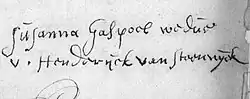 susanna Gaspoel weduē
v. Henderijck van steenwijck